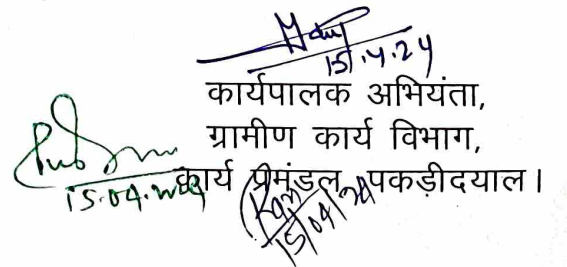 15.4.24
कार्यपालक अभियंता,
ग्रामीण कार्य विभाग,
कार्य प्रमंडल, पकड़ीदयाल।
15.04.2024
15/04/24